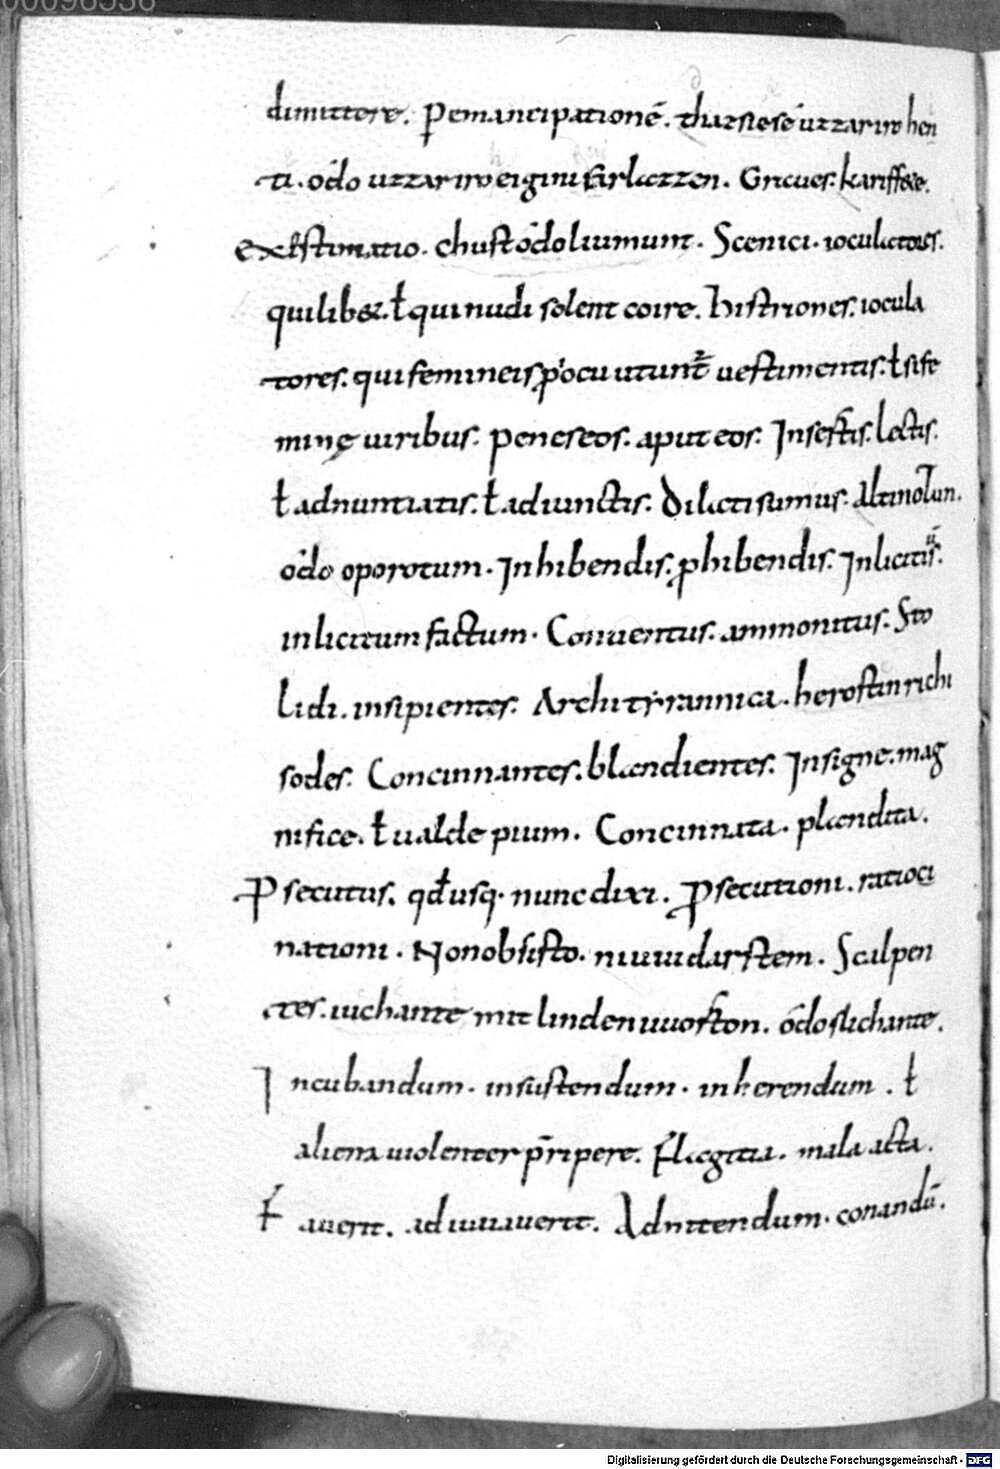 00096336
dimittere. Pemancipationē. thaz sie sé uzzar iro hen
ti. odo uzzar iro eigini farlazzen. Graues. kariffere.
existimatio. chust odo liumunt. Scenici. ioculatores.
quilibet. ł qui nudi solent coire. Histriones. iocula
tores. qui femineis procu utunt᷑ uestimentis. ł si fe
minę uiribus. peneseos. aput eos. Insertis. lectis.
ł adnuntiatis. ł adiunctis. Dilatisumus. altinot un.
odo oporotum. Inhibendis. ꝓhibendis. Inlicitis.
inlicitum factum. Conuentus. ammonitus. Sto
lidi. insipientes. Archityrannica. herostin richi
sodes. Concinnantes. blandientes. Insigne. mag
nifice. ł ualde pium. Concinnata. plandita.
Psecutus. qđ usq; nunc dixi. Psecutioni. ratioci
nationi. Non obsisto. niuuidarstem. Scalpen
tes. iuchante mit linden uuorton. odo slichante.
Incubandum. insistendum. inherendum. ł
aliena uiolenter p̄ripere. Flagitia. mala acta.
F auerit. adiuuauerit. Adnitendum. conandū.
Digitalisierung gefördert durch die Deutsche Forschungsgemeinschaft - DFG